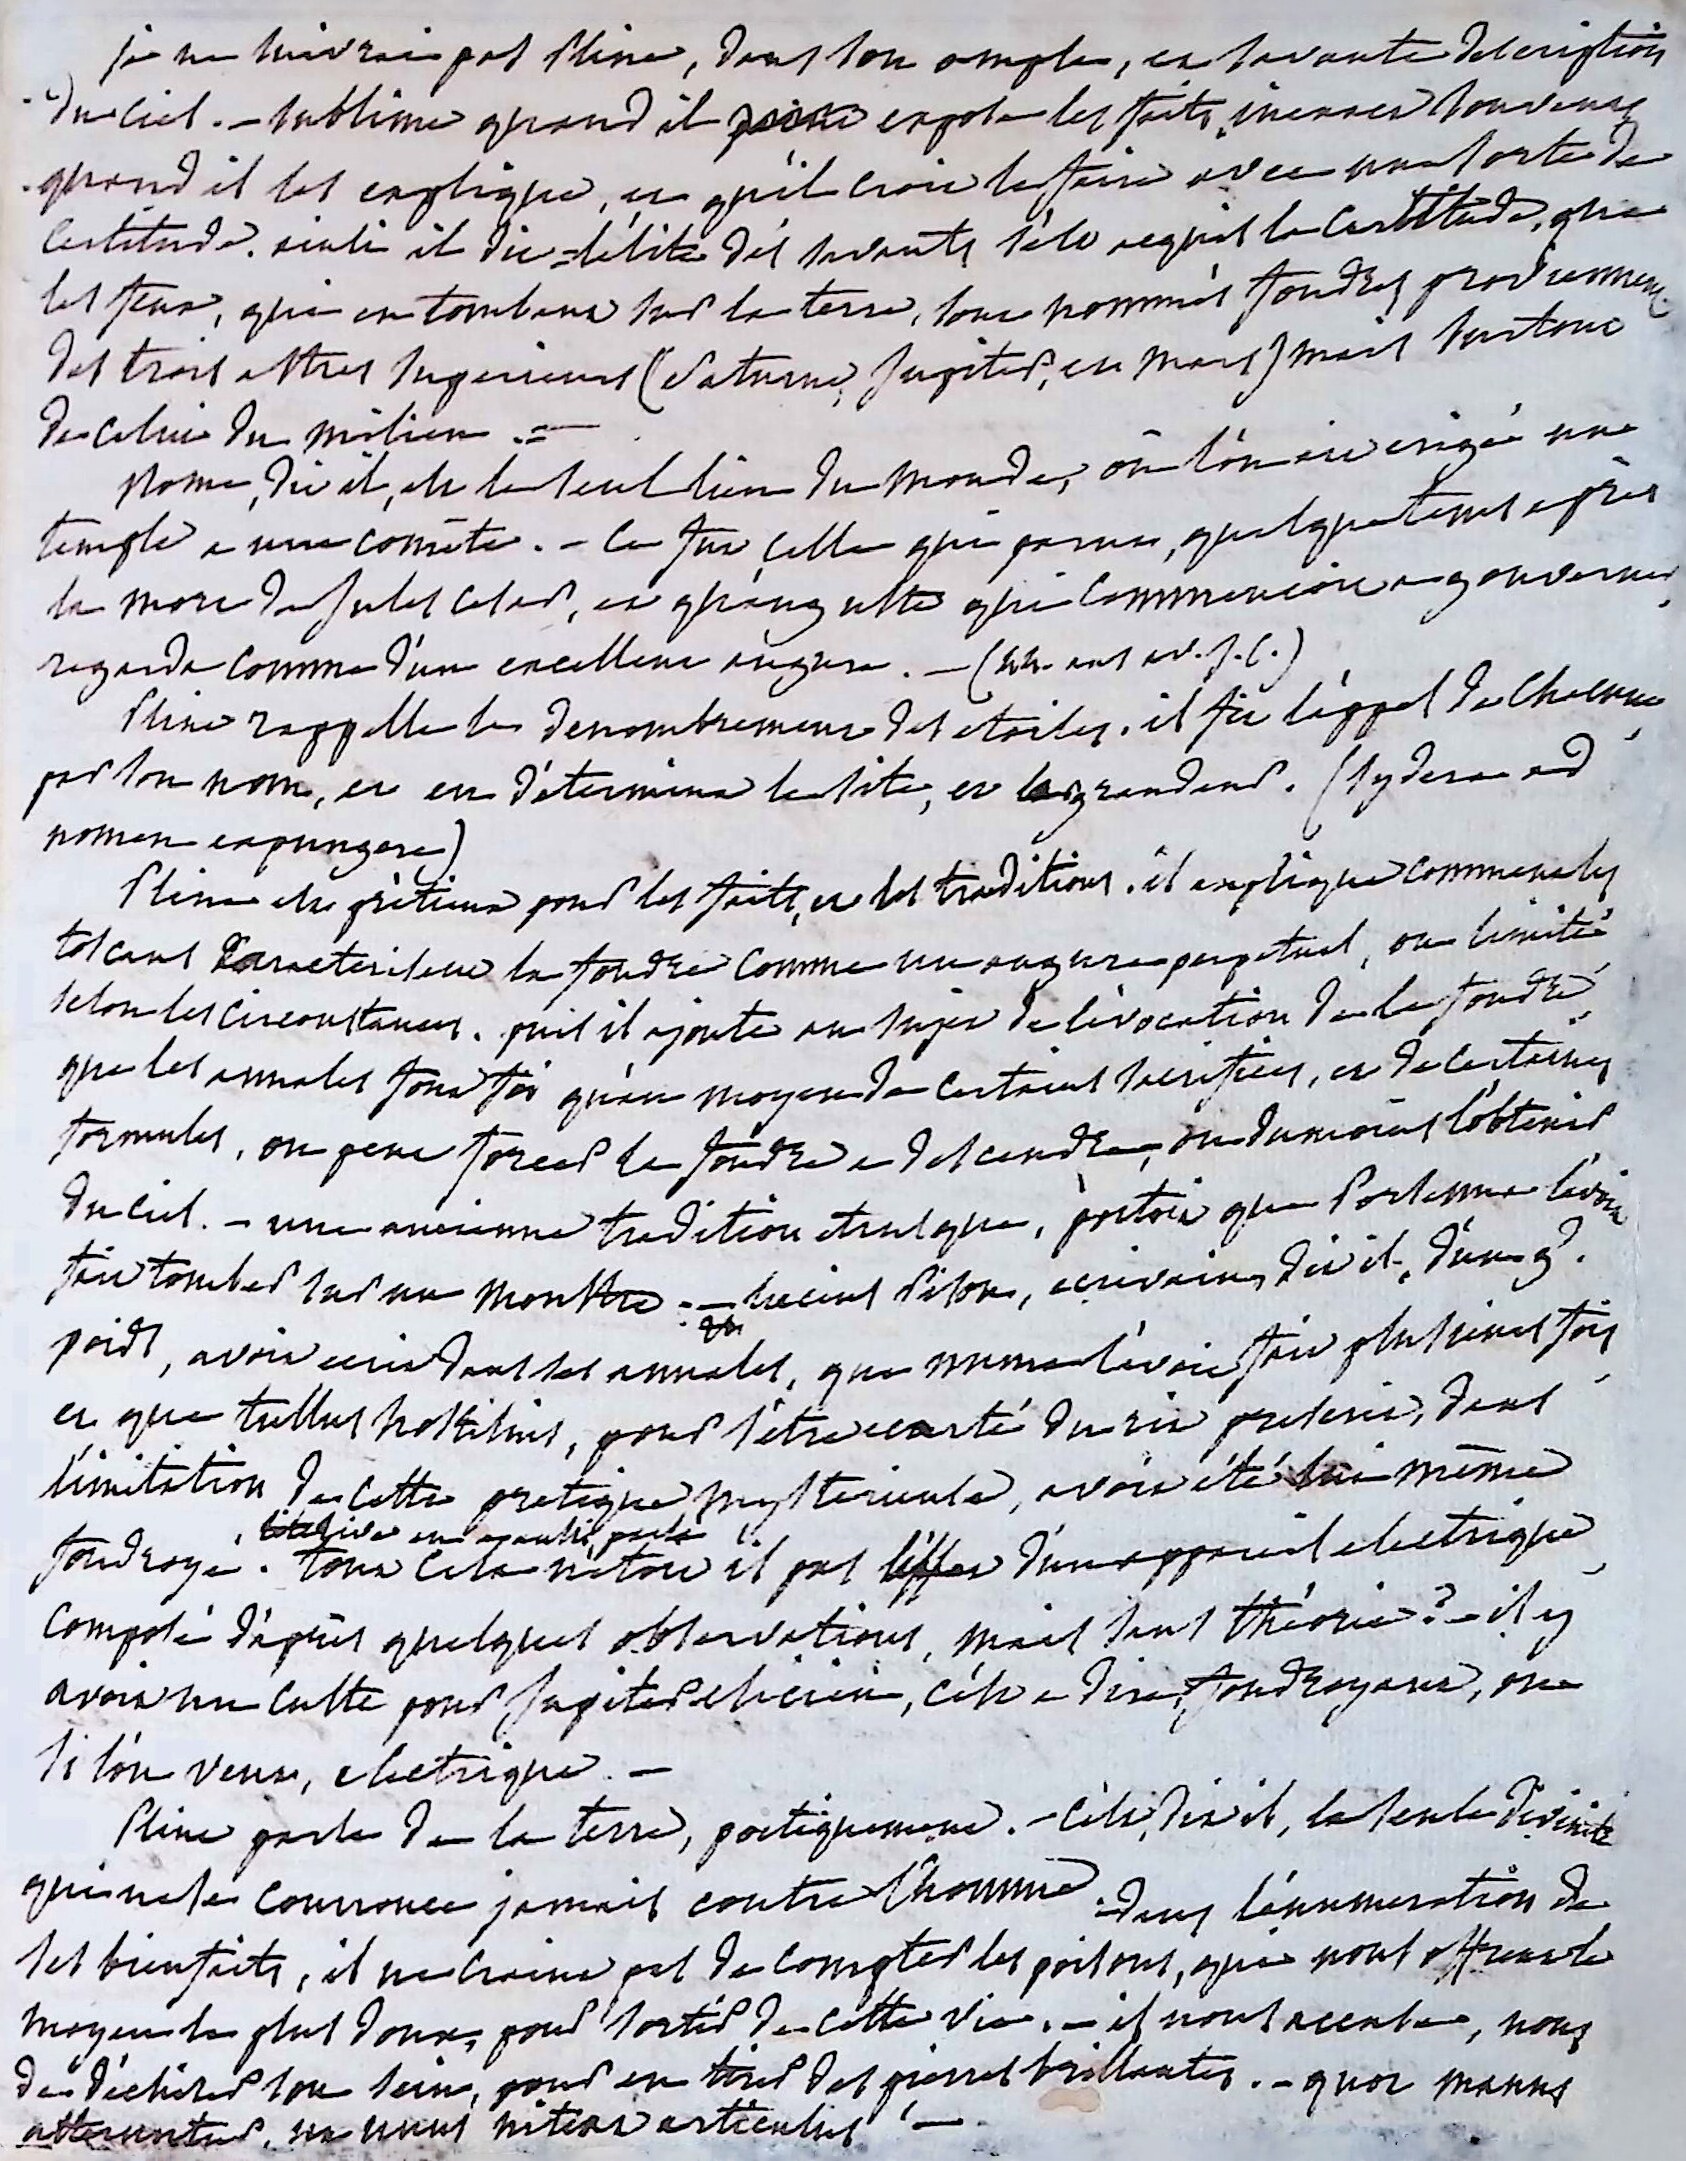 je ne suivrai pas Pline, dans son ample, et savante description
du ciel. – sublime quand il expose les faits, inexact souvent
quand il les explique, et qu'il croit le faire avec une sorte de
certitude. ainsi il dit = l'élite des savants s'est acquis la certitude, que
les feux, qui en tombant sur la terre, sont nommés foudres proviennent
des trois astres superieurs (Saturne, Jupiter, et Mars) mais surtout
de celui du milieu. =
Rome, dit il, est le seul lieu du monde, où l'on ait erigé un
temple a une comète. – Ce fut celle qui parut, quelque tems après
la mort de Jules Cesar, et qu'auguste qui commencoit a gouverner,
regarda comme d'un excellent augure. – (44. ans av. J. C.)
Pline rappelle le denombrement des etoiles. il fit l'appel de chacune,
par son nom, et en détermina le site, et la grandeur. (sydera ad
nomen expungere)
Pline est prétieux pour les faits, et les traditions. il explique comment les
toscans caracterisent la foudre comme un augure perpetuel, ou limité,
selon les circonstances. puis il ajoute au sujet de l'évocation de la foudre,
que les annales font foi qu'au moyen de certains sacrifices, et de certaines
formules, on peut forcer la foudre a descendre, ou du moins l'obtenir
du ciel. – une ancienne tradition etrusque, portoit que Porsenna l'avoit
fait tomber sur un monstre. – Lucius Pison, ecrivain, dit il, d'un gd.
poids, avoit ecrit dans ses annales, que numa l'avoit fait plusieurs fois,
et que tullus hostilius, pour s'être ecarté du rit prescrit, dans
l'imitation de cette pratique mysterieuse, avoit été lui même
foudroyé. tite live en aussi parlé
tout cela n'etoit il pas l'effet d'un appareil electrique,
composé d'après quelques observations, mais sans théorie? – il y
avoit un culte pour Jupiter elicien, c'est a dire, foudroyant, ou
si l'on veut, electrique. –
Pline parle de la terre, poetiquement. – C'est, dit il, la seule divinité
qui ne se courrouce jamais contre l'homme. dans l'énumeration de
ses bienfaits, il ne craint pas de compter les poisons, qui nous offrent le
moyen le plus doux, pour sortir de cette vie. – il nous accuse, nous
de déchirer son sein, pour en tirer des pierres brillantes. – quot manus
atteruntur, ut unus niteat articulus! –